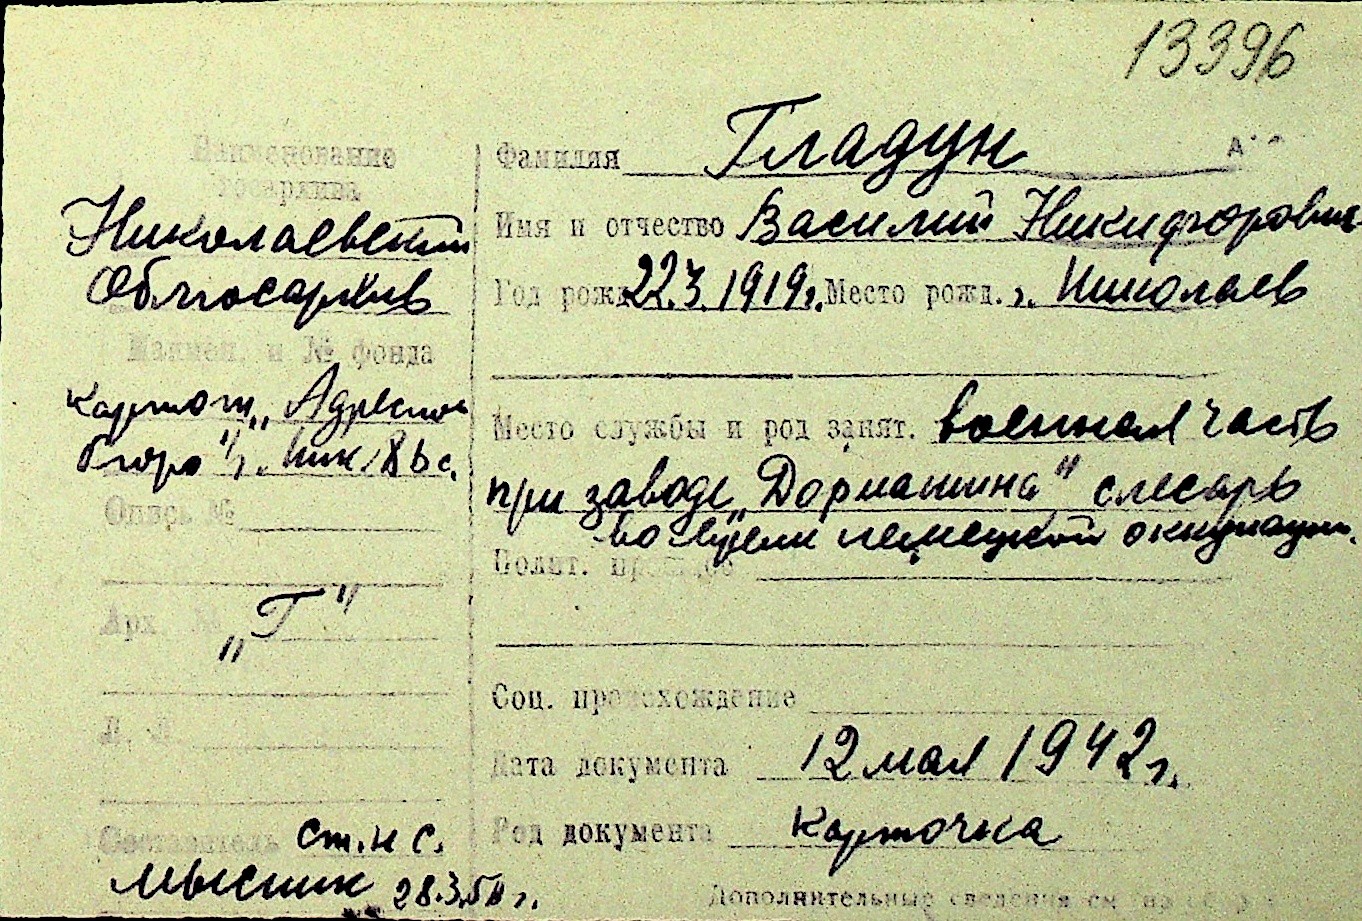 13396
Наименование
госархива
Николаевский
Облгосархив
Наимен. и № фонда
картот. „Адресное
бюро" г. Ник
Опись №
Арх. №
„Г"
Л. Л
Составитель ст. н с.
28.3.
Фамилия Гладун
Имя и отчество Василий Никифорович
Год рожд. 22.3.1919г. Место рожд. г. Николаев
Место службы и род занят. военная часть
при заводе „Дормашина" слесарь
во время немецкой оккупации.
Полит. прошлое
Соц. происхождение
Дата документа 12 мая 1942г.
Род документа Карточка
Дополнительные сведения см. на